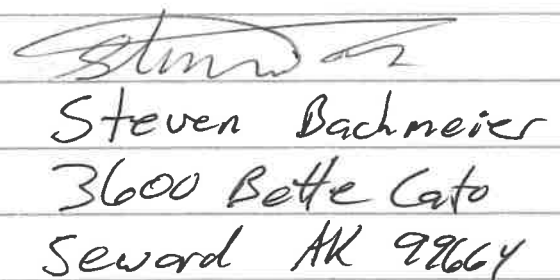 Steven Bachmeier
3600 Bette Cato
Seward AK 99664